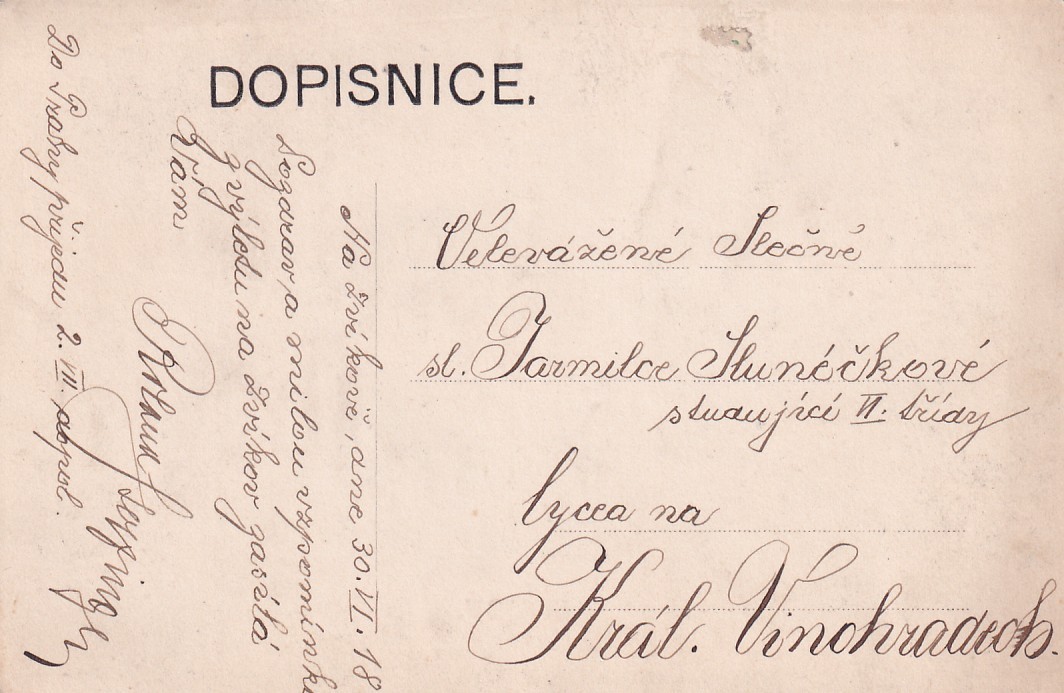 DOPISNICE.
Na Zvíkově, dne 30. VI. 18
Pozdrav a milou vzpomínku
z výletu na Zvíkov zasílá
Vám
Do Prahy přijedu 2. VII. dopol.
Velevážené Slečně
sl. Jarmilce Slunéčkové
studující VI. třídy
lycea na
Král. Vinohradech.